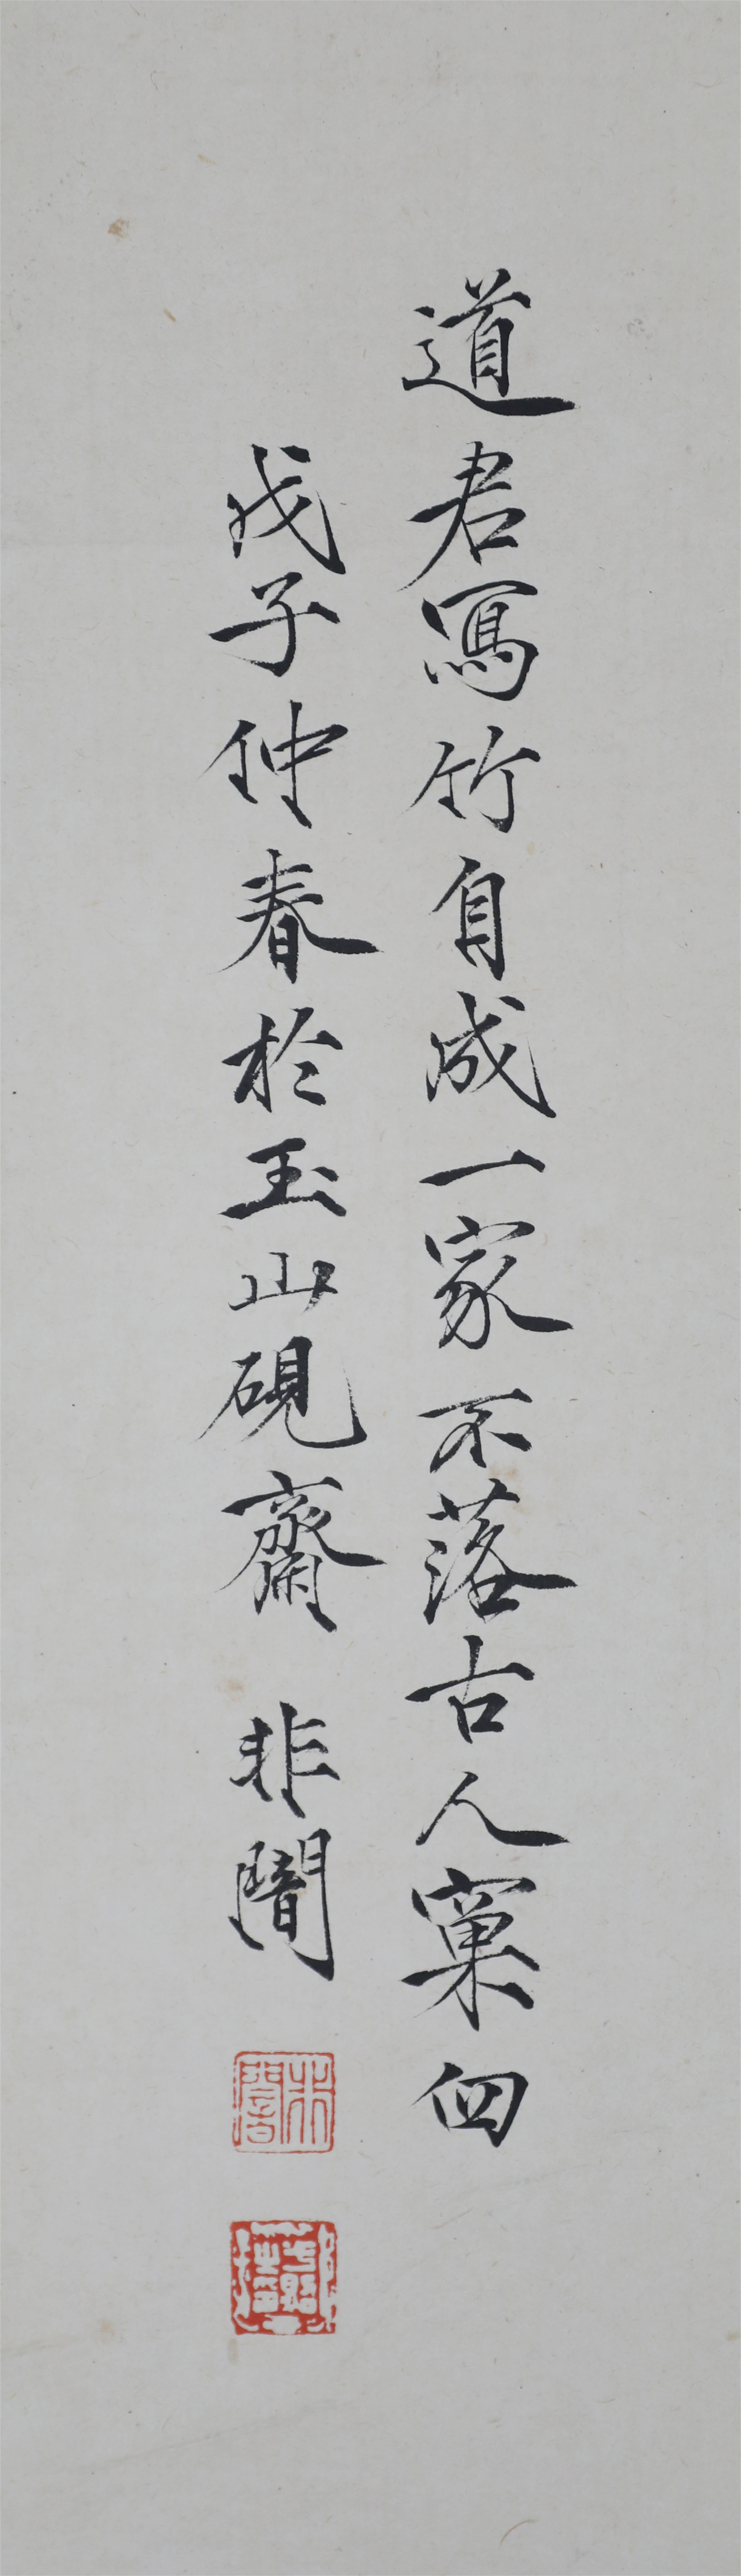 道君寫竹自成一家不落古人窠臼
戊子仲春於玉山硯齋 非闇